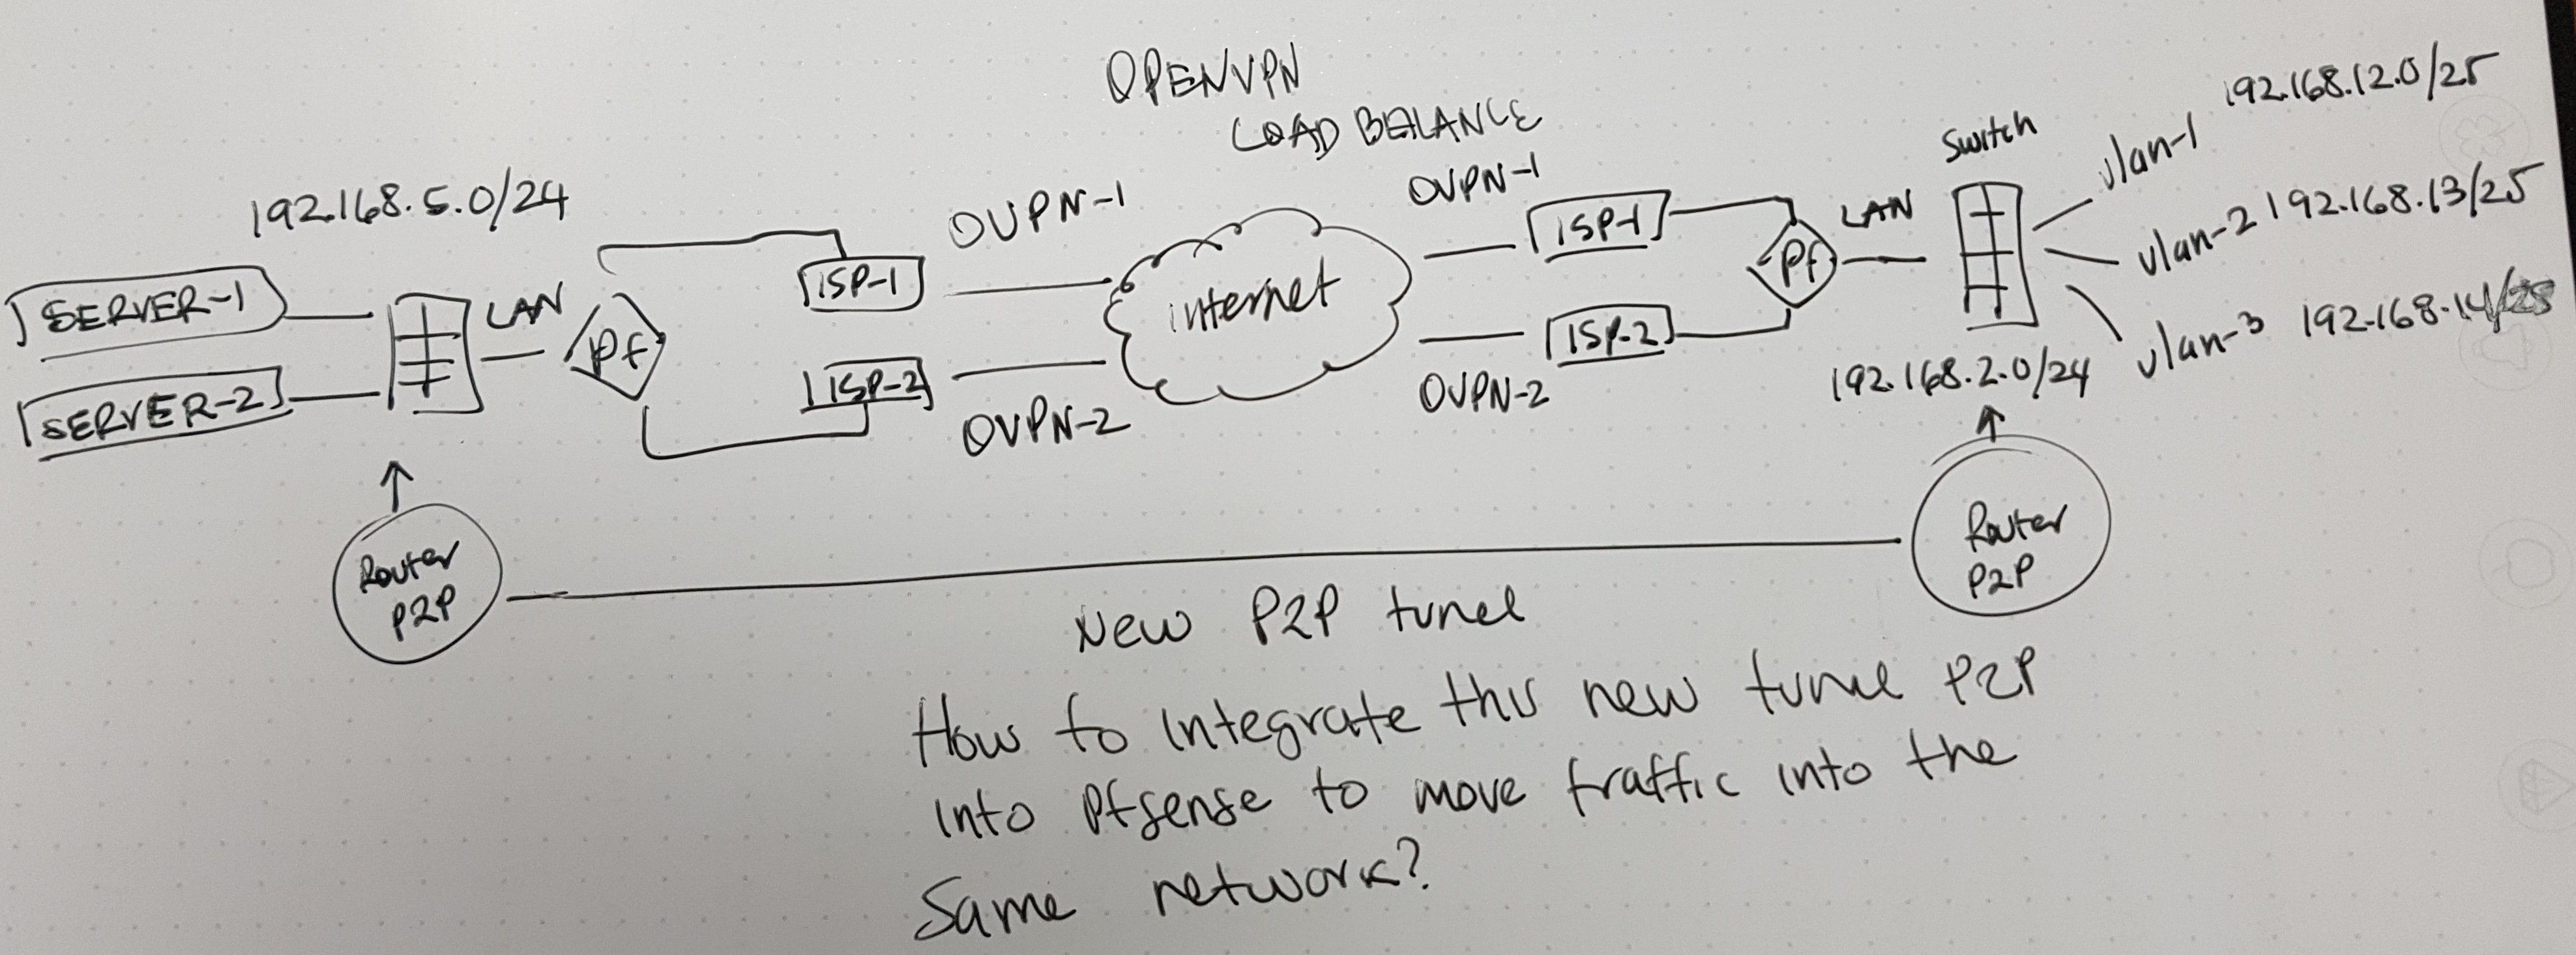 OPENVPN
LOAD BALANCE
192.168.5.0/24
SERVER-1
SERVER-2
LAN
Pf
ISP-1
ISP-2
OVPN-1
OVPN-2
internet
OVPN-1
OVPN-2
ISP-1
ISP-2
Pf
LAN
Switch
vlan-1 192.168.12.0/25
vlan-2 192.168.13/25
vlan-3 192.168.14/25
192.168.2.0/24
Router
P2P
Router
P2P
New P2P tunel
How to integrate this new tunel P2P
into Pfsense to move traffic into the
Same network?